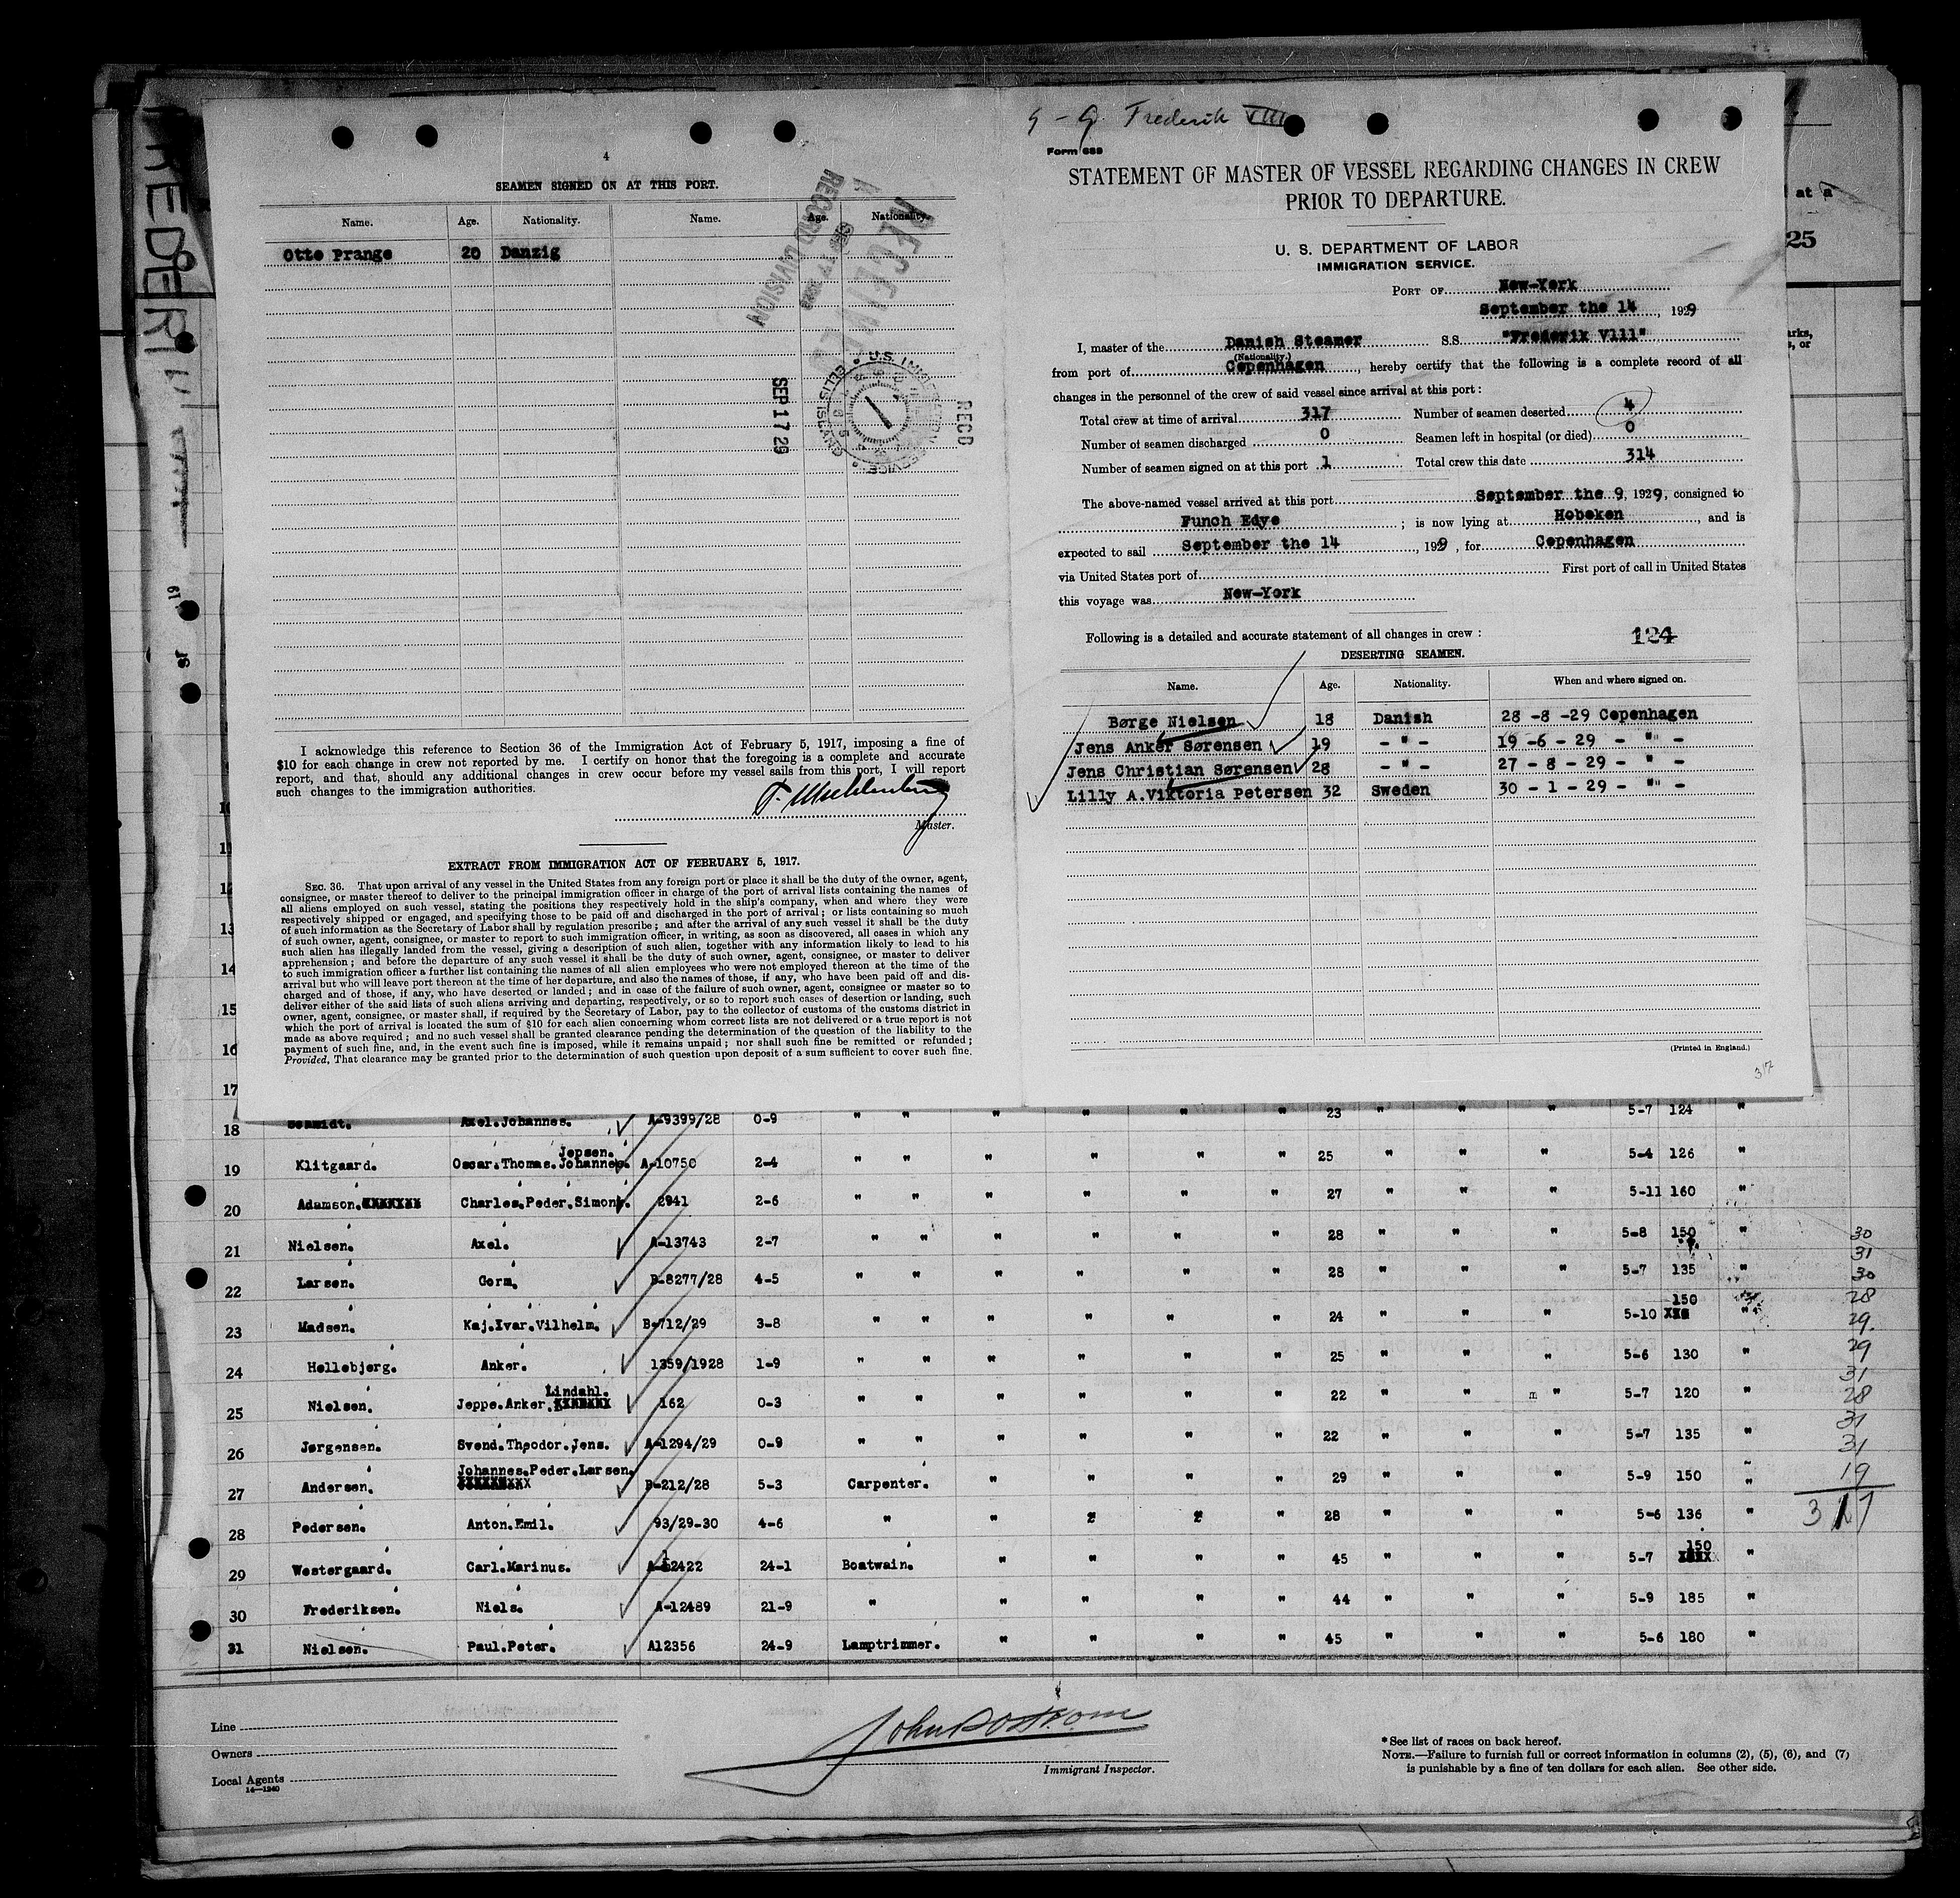 FREDERIK VIII
4
SEAMEN SIGNED ON AT THIS PORT.
Name. Age. Nationality. Name. Age. Nationality.
Otto Prange 20 Danzig
RECEIVED
RECORD DIVISION
SEP 17 29
U.S. IMMIGRATION SERVICE
ELLIS ISLAND
REC'D
I acknowledge this reference to Section 36 of the Immigration Act of February 5, 1917, imposing a fine of
$10 for each change in crew not reported by me. I certify on honor that the foregoing is a complete and accurate
report, and that, should any additional changes in crew occur before my vessel sails from this port, I will report
such changes to the immigration authorities.
Master.
EXTRACT FROM IMMIGRATION ACT OF FEBRUARY 5, 1917.
SEC. 36. That upon arrival of any vessel in the United States from any foreign port or place it shall be the duty of the owner, agent,
consignee, or master thereof to deliver to the principal immigration officer in charge of the port of arrival lists containing the names of
all aliens employed on such vessel, stating the positions they respectively hold in the ship's company, when and where they were
respectively shipped or engaged, and specifying those to be paid off and discharged in the port of arrival; or lists containing so much
of such information as the Secretary of Labor shall by regulation prescribe; and after the arrival of any such vessel it shall be the duty
of such owner, agent, consignee, or master to report to such immigration officer, in writing, as soon as discovered, all cases in which any
such alien has illegally landed from the vessel, giving a description of such alien, together with any information likely to lead to his
apprehension; and before the departure of any such vessel it shall be the duty of such owner, agent, consignee, or master to deliver
to such immigration officer a further list containing the names of all alien employees who were not employed thereon at the time of the
arrival but who will leave port thereon at the time of her departure, and also the names of those, if any, who have been paid off and dis-
charged and of those, if any, who have deserted or landed; and in case of the failure of such owner, agent, consignee or master so to
deliver either of the said lists of such aliens arriving and departing, respectively, or so to report such cases of desertion or landing, such
owner, agent, consignee, or master shall, if required by the Secretary of Labor, pay to the collector of customs of the customs district in
which the port of arrival is located the sum of $10 for each alien concerning whom correct lists are not delivered or a true report is not
made as above required; and no such vessel shall be granted clearance pending the determination of the question of the liability to the
payment of such fine, and, in the event such fine is imposed, while it remains unpaid; nor shall such fine be remitted or refunded;
Provided, That clearance may be granted prior to the determination of such question upon deposit of a sum sufficient to cover such fine.
9 - 9 Frederik VIII
Form 689
STATEMENT OF MASTER OF VESSEL REGARDING CHANGES IN CREW
PRIOR TO DEPARTURE.
U. S. DEPARTMENT OF LABOR
IMMIGRATION SERVICE.
PORT OF New-York
September the 14, 1929
I, master of the Danish Steamer S.S. "Frederik Vlll"
(Nationality.)
from port of Copenhagen, hereby certify that the following is a complete record of all
changes in the personnel of the crew of said vessel since arrival at this port:
Total crew at time of arrival 317 Number of seamen deserted 4
Number of seamen discharged 0 Seamen left in hospital (or died) 0
Number of seamen signed on at this port 1 Total crew this date 314
The above-named vessel arrived at this port September the 9, 1929, consigned to
Funch Edye; is now lying at Hoboken, and is
expected to sail September the 14, 1929, for Copenhagen
via United States port of First port of call in United States
this voyage was New-York
Following is a detailed and accurate statement of all changes in crew: 124
DESERTING SEAMEN.
Name. Age. Nationality. When and where signed on.
Børge Nielsen 18 Danish 28 -8 -29 Copenhagen
Jens Anker Sørensen 19 - " - 19 -6 - 29 - " -
Jens Christian Sørensen 28 - " - 27 - 8 - 29 - " -
Lilly A.Viktoria Petersen 32 Sweden 30 - 1 - 29 - " -
(Printed in England.)
317
at a
25
18 Schmidt. Axel.Johannes. A-9399/28 0-9 " " " " " " 23 " " " 5-7 124 "
19 Klitgaard. Oscar.Thomas.Johannes. Jepsen. A-10750 2-4 " " " " " " 25 " " " 5-4 126 "
20 Adamson. Charles.Peder.Simon. 2941 2-6 " " " " " " 27 " " " 5-11 160 "
21 Nielsen. Axel. A-13743 2-7 " " " " " " 28 " " " 5-8 150 "
22 Larsen. Gorm. B-8277/28 4-5 " " " " " " 28 " " " 5-7 135 "
23 Madsen. Kaj.Ivar.Vilhelm. B-712/29 3-8 " " " " " " 24 " " " 5-10 150 "
24 Hellebjerg. Anker. 1359/1928 1-9 " " " " " " 25 " " " 5-6 130 "
25 Nielsen. Jeppe.Anker. Lindahl. 162 0-3 " " " " " " 22 " " " 5-7 120 "
26 Jørgensen. Svend.Theodor.Jens. A-1294/29 0-9 " " " " " " 22 " " " 5-7 135 "
27 Andersen. Johannes.Peder.Larsen. B-212/28 5-3 Carpenter. " " " " 29 " " " 5-9 150 "
28 Pedersen. Anton.Emil. 93/29-30 4-6 " " " " " 28 " " " 5-6 136 "
29 Westergaard. Carl.Marinus. A-12422 24-1 Boatwain. " " " " 45 " " " 5-7 150 "
30 Frederiksen. Niels. A-12489 21-9 " " " " " 44 " " " 5-9 185 "
31 Nielsen. Paul.Peter. A12356 24-9 Lamptrimmer. " " " " 45 " " " 5-6 180 "
30
31
30
28
29.
29
31
28
31
31
19
317
Line
Owners
Local Agents
14—1240
Immigrant Inspector.
* See list of races on back hereof.
NOTE.—Failure to furnish full or correct information in columns (2), (5), (6), and (7)
is punishable by a fine of ten dollars for each alien. See other side.